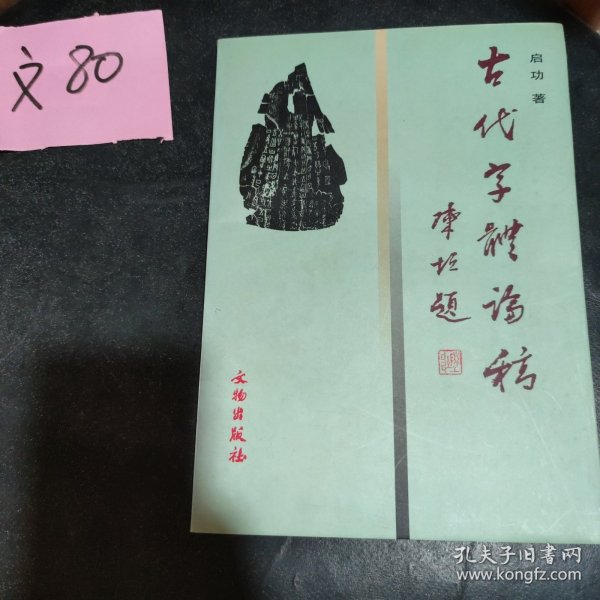 文80
启功著
古代字體論稿
陳垣題
文物出版社
孔夫子旧书网
www.kongfz.com